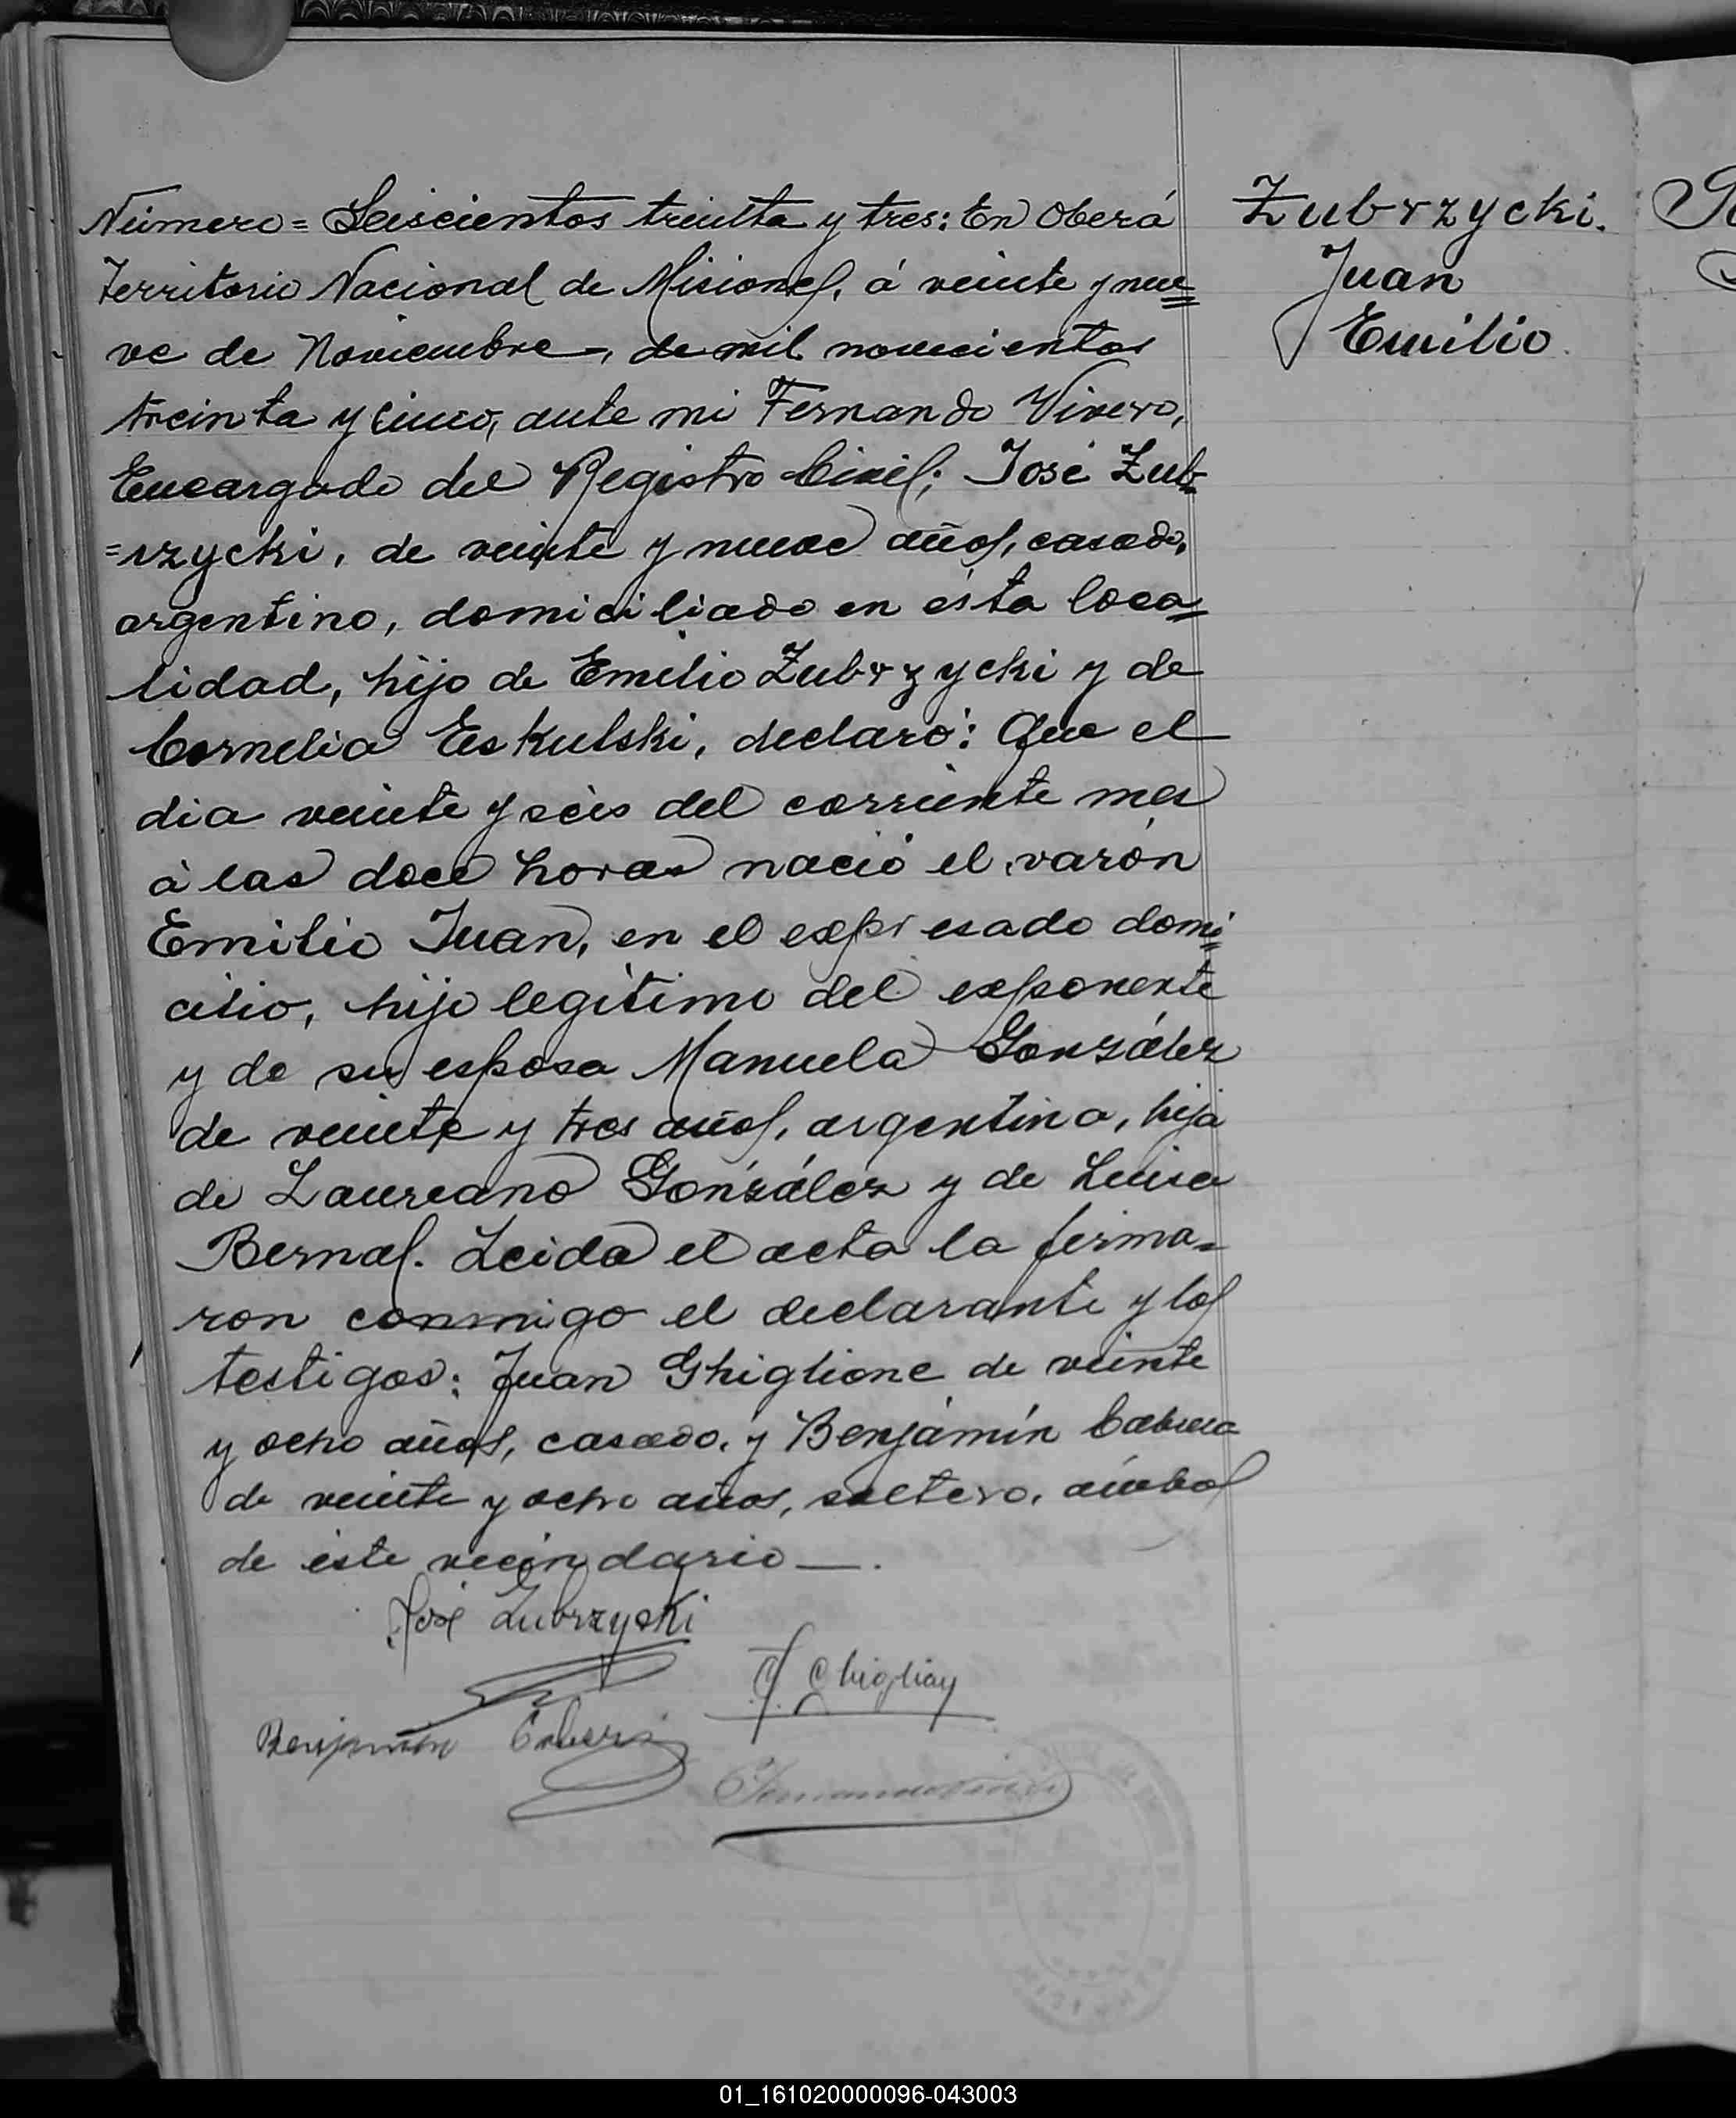 Número = Seiscientos treinta y tres: En Oberá
Territorio Nacional de Misiones, á veinte y nue=
ve de Noviembre, de mil novecientos
treinta y cinco, ante mi Fernando Vivero,
Encargado del Registro Civil; José Zub=
=rzycki, de veinte y nueve años, casado,
argentino, domiciliado en ésta loca=
lidad, hijo de Emilio Zubrzycki y de
Cornelia Eskulski, declaró: Que el
dia veinte y seis del corriente mes
á las doce horas nació el varón
Emilio Juan, en el expresado domi=
cilio, hijo legítimo del exponente
y de su esposa Manuela González
de veinte y tres años, argentina, hija
de Laureano González y de Luisa
Bernal. Leida el acta la firma=
ron conmigo el declarante y los
testigos: Juan Ghiglione de veinte
y ocho años, casado, y Benjamín Cabrera
de veinte y ocho años, soltero, ámbos
de éste vecindario —.
José Zubrzycki
Benjamín
Zubrzycki.
Juan
Emilio
01_161020000096-043003